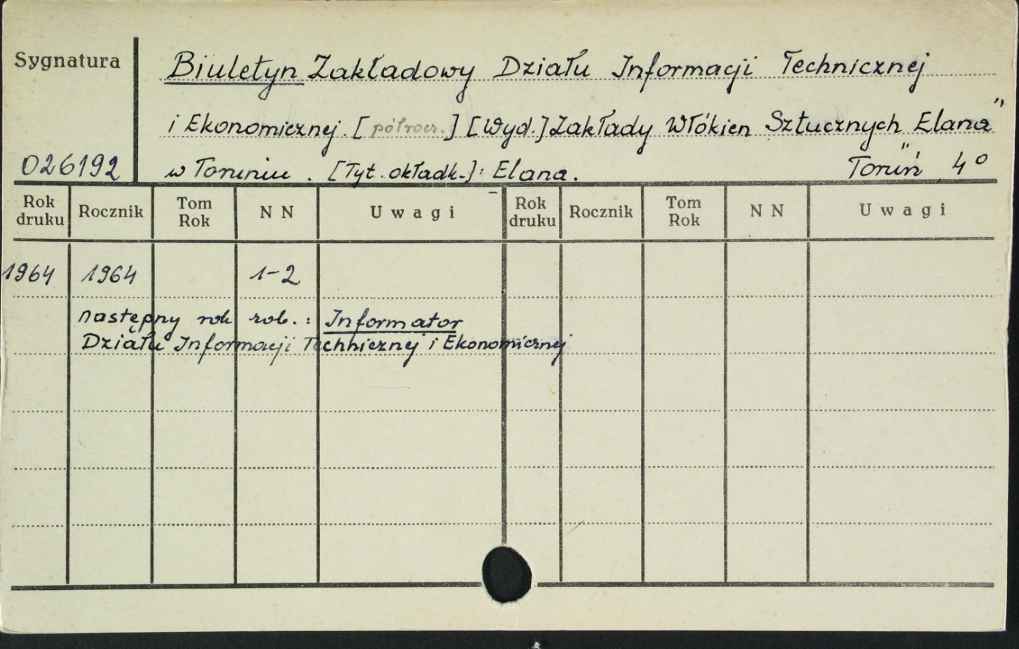 Sygnatura
Biuletyn Zakładowy Działu Informacji Technicznej
i Ekonomicznej. [półrocz.] [Wyd.] Zakłady Włókien Sztucznych „Elana”
026192
w Toruniu. [Tyt. okładk.]: Elana. Toruń 4°
Rok druku Rocznik Tom Rok N N Uwagi Rok druku Rocznik Tom Rok N N Uwagi
1964 1964 1-2
następny rok zob.: Informator
Działu Informacji Technicznej i Ekonomicznej